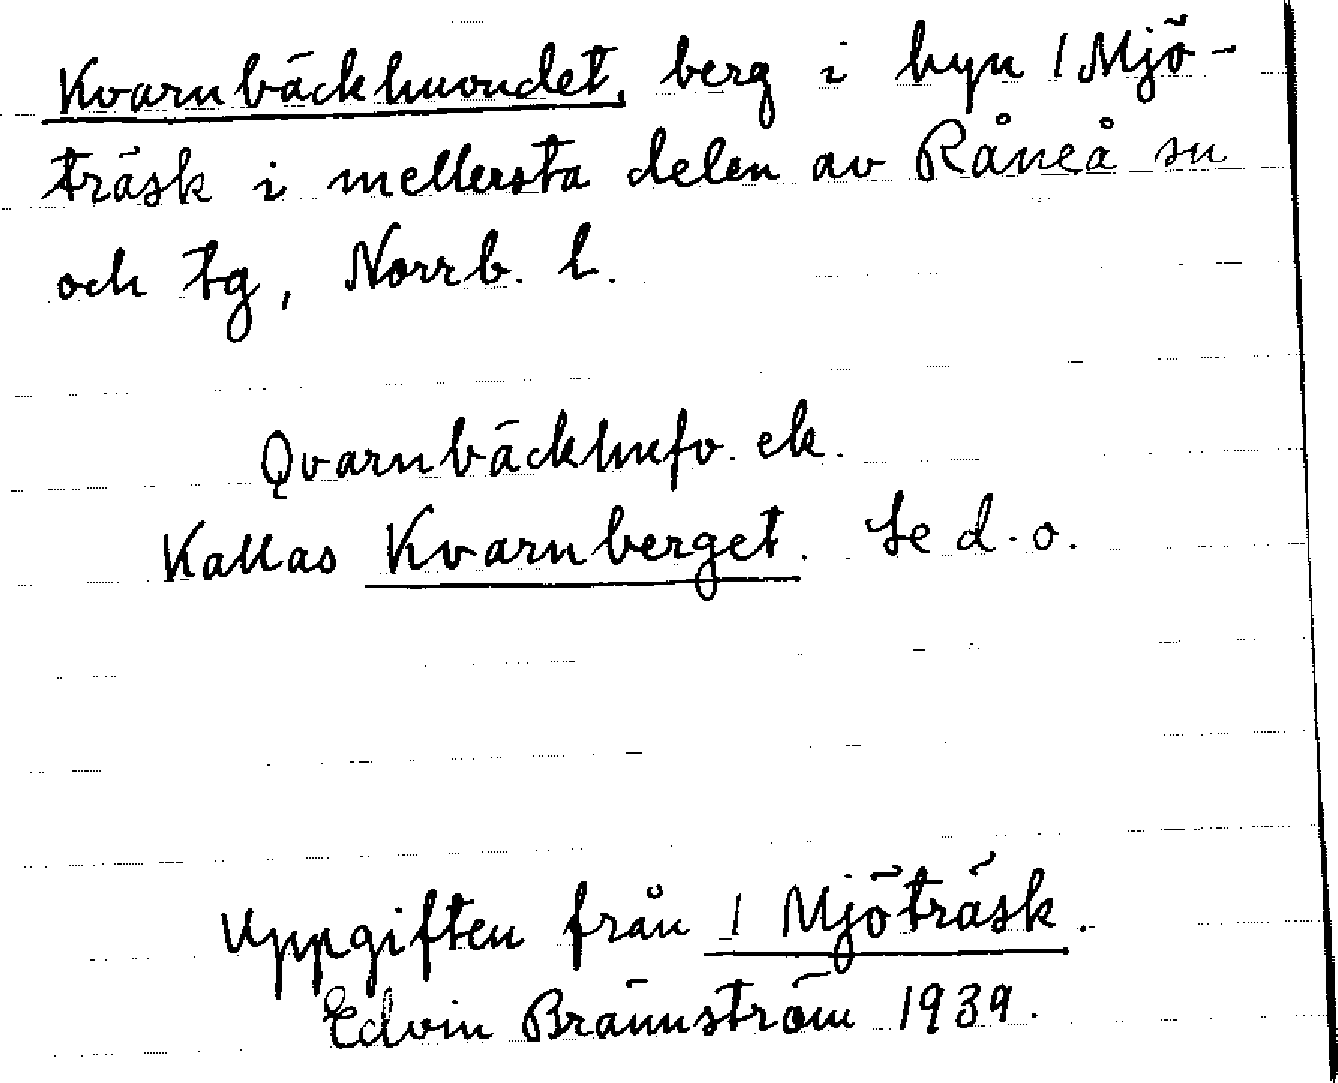 Kvarnbäckhuvudet, berg i byn 1 Mjö-
träsk i mellersta delen av Råneå sn
och tg, Norrb. l.
Qvarnbäckhufv. ek.
Kallas Kvarnberget. Se d.o.
Uppgiften från 1 Mjöträsk.
Edvin Brännström 1939.